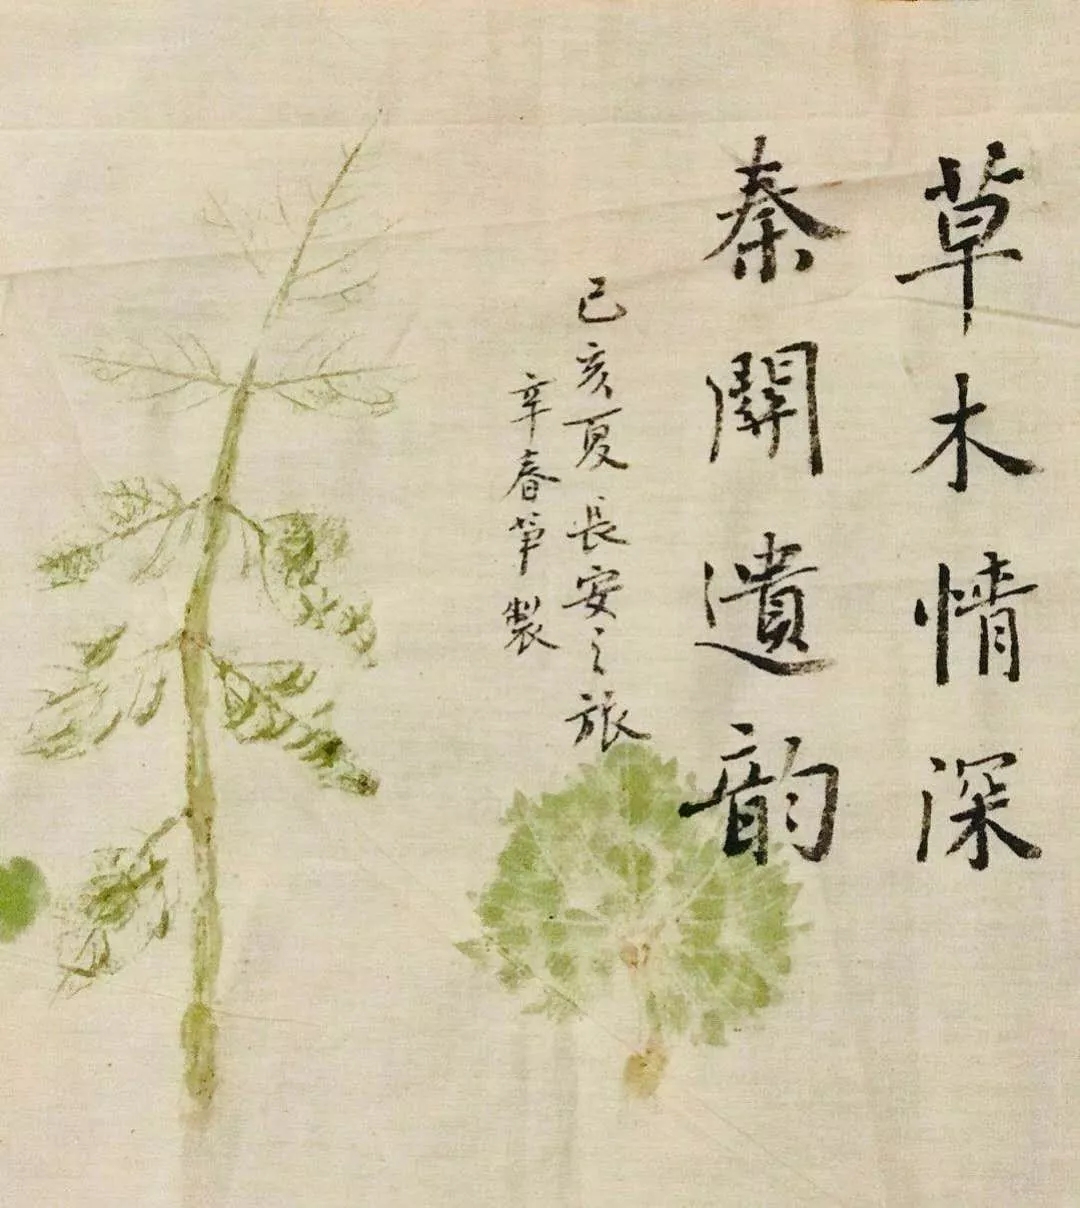 草木情深
秦關遺韵
己亥夏長安之旅
辛春笋製